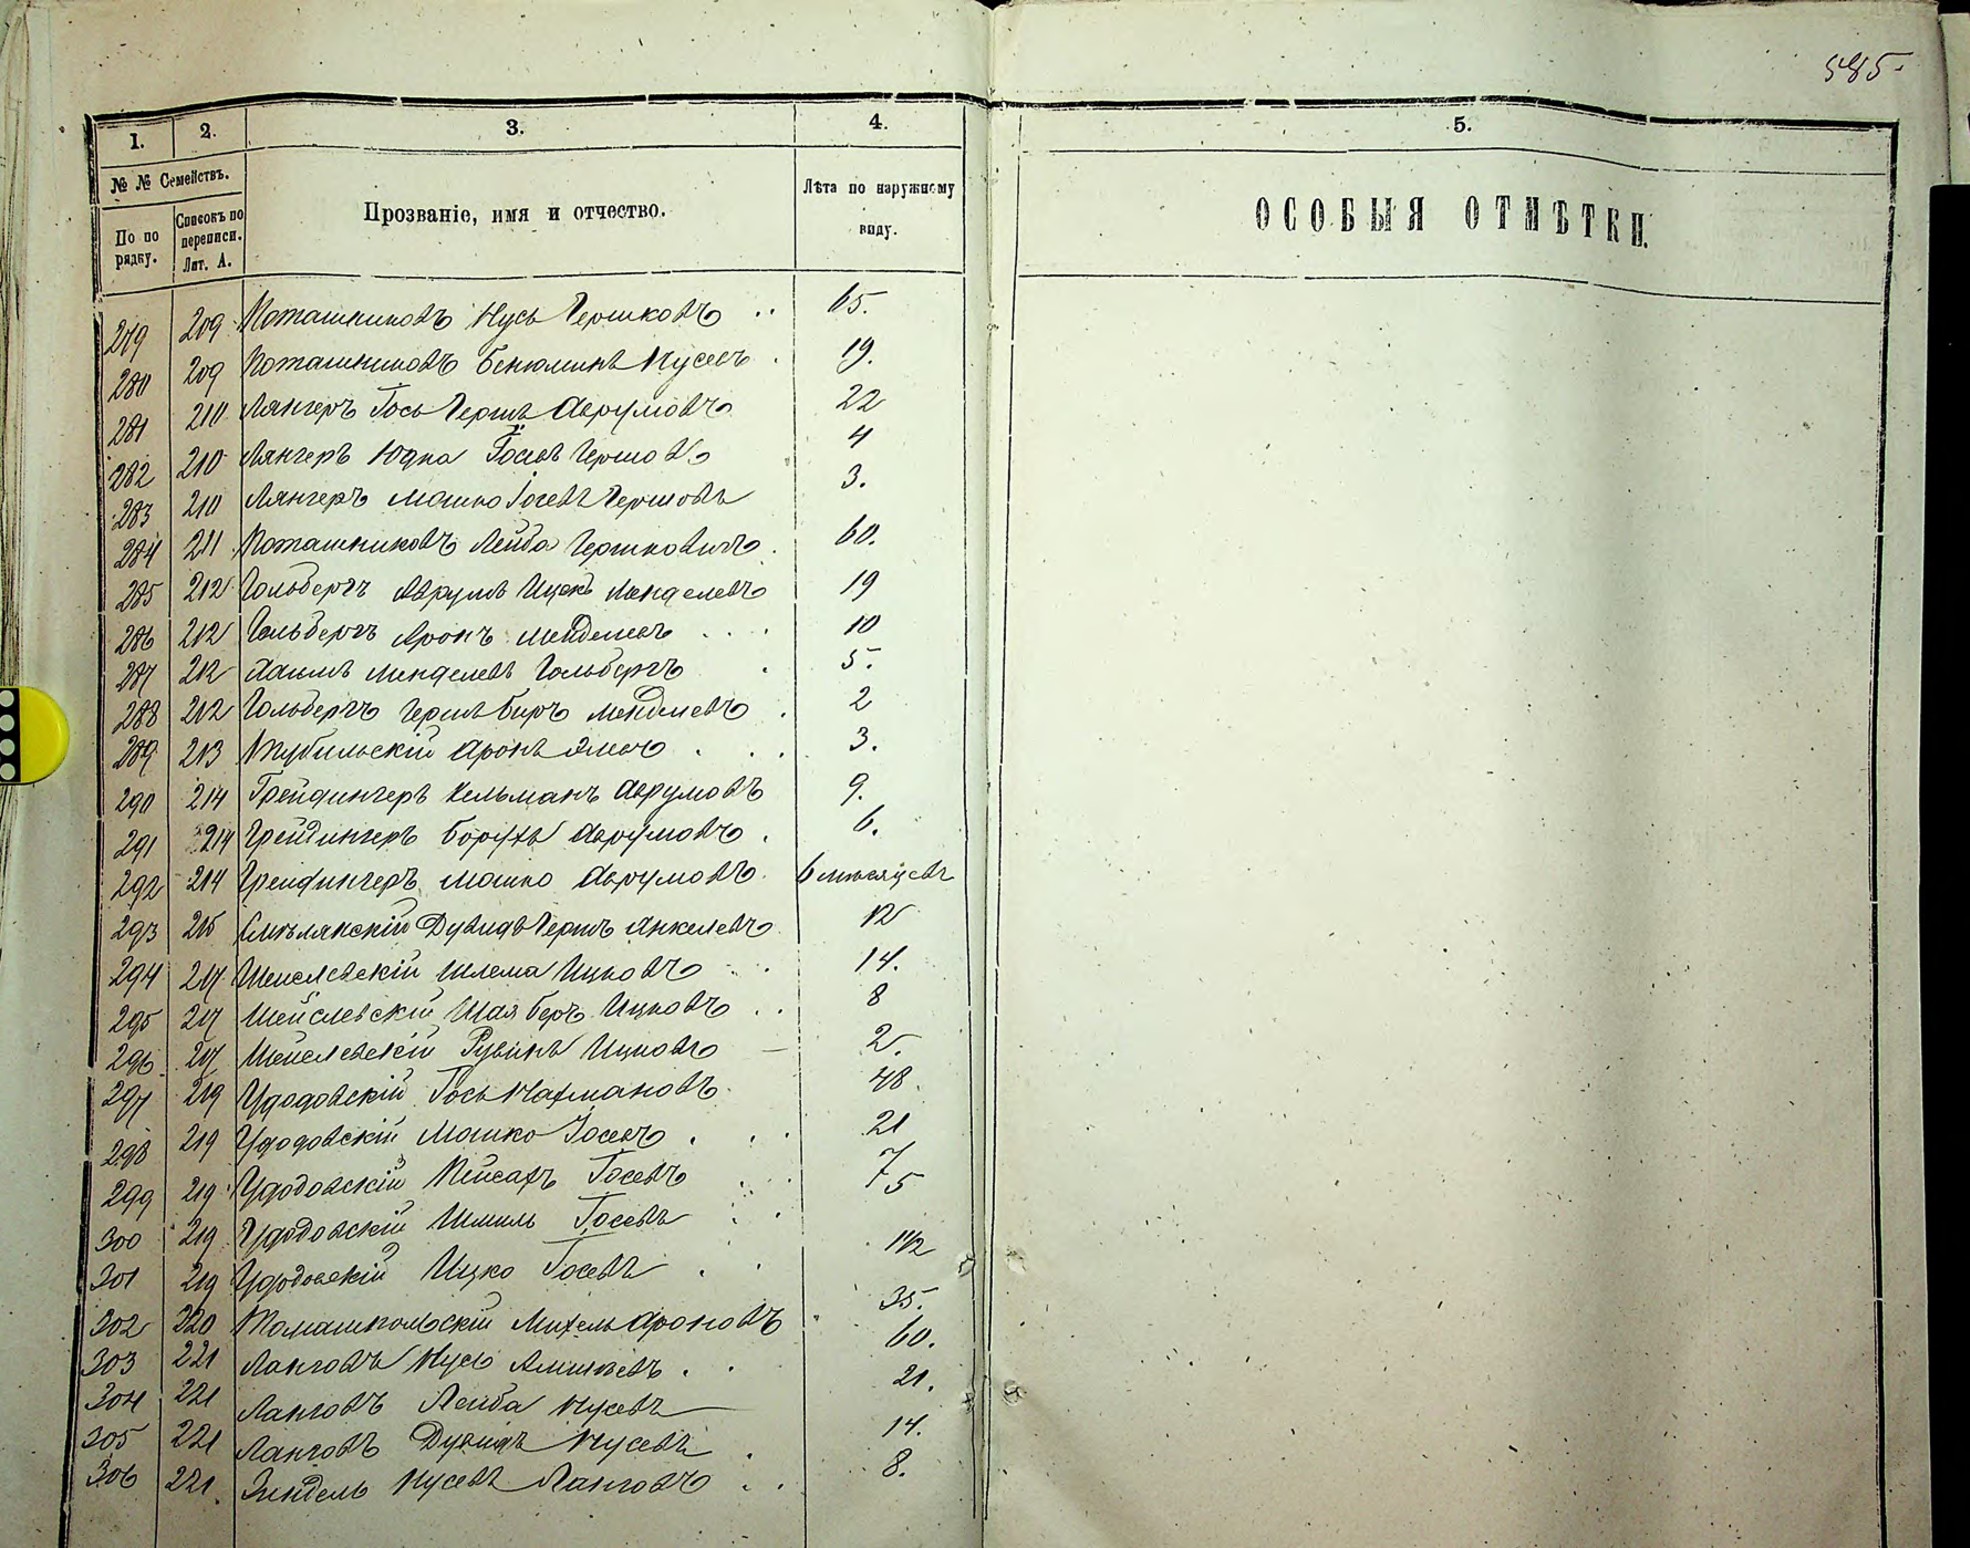 585.
1. 2. 3. 4. 5.
№ № Семействъ.
По по рядку. Списокъ по переписи. Лит. А. Прозваніе, имя и отчество. Лѣта по наружному виду. ОСОБЫЯ ОТМѢТКИ.
279 209 Поташниковъ Нусь Гершковъ 65.
280 209 Поташниковъ Бенюминъ Нусевъ 19.
281 210 Лянгеръ Іось Гершъ Аврумовъ 22
282 210 Лянгеръ Юдка Іосевъ Гершовъ 4
283 210 Лянгеръ Мошко Іосевъ Гершовъ 3.
284 211 Поташниковъ Лейба Гершковичъ 60.
285 212 Гольбергъ Аврумъ Ицекъ Менделевъ 19
286 212 Гольбергъ Аронъ Менделевъ 10
287 212 Хаимъ Менделевъ Гольбергъ 5.
288 212 Гольбергъ Гершъ Беръ Менделевъ 2
289 213 Аронъ 3.
290 214 Грейдингеръ Кельманъ Аврумовъ 9.
291 214 Грейдингеръ Борухъ Аврумовъ 6.
292 214 Грейдингеръ Мошко Аврумовъ 6 мѣсяцевъ
293 215 Смѣлянскій Дувидъ Гершъ Янкелевъ 12
294 217 Шейслевскій Шлема Ицковъ 14.
295 217 Шейслевскій Шая Беръ Ицковъ 8
296 217 Шейслевскій Рувинъ Ицковъ 2.
297 219 Удодовскій Іось Нахмановъ 48.
298 219 Удодовскій Мошко Іосевъ 21
299 219 Удодовскій Пейсахъ Іосевъ 7
300 219 Удодовскій Шмиль Іосевъ 5
301 219 Удодовскій Ицко Іосевъ 1 1/2
302 220 Томашпольскій Михель Ароновъ 35.
303 221 Ланговъ Нусь 60.
304 221 Ланговъ Лейба Нусевъ 21.
305 221 Ланговъ Дувидъ Нусевъ 14.
306 221. Зиндель Нусевъ Ланговъ 8.